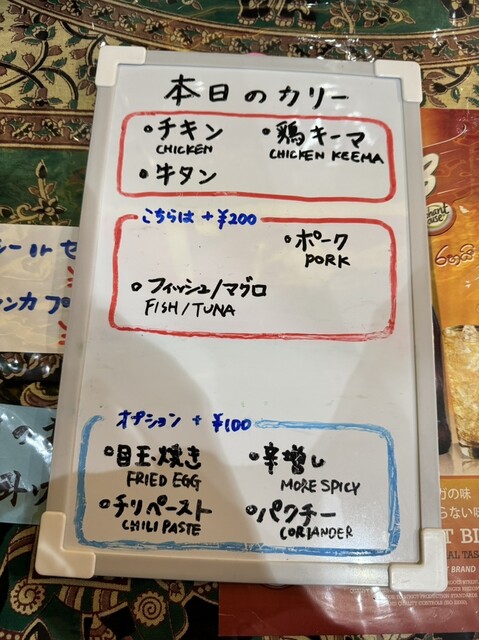 本日のカリー
・チキン ・鶏キーマ
CHICKEN CHICKEN KEEMA
・牛タン
こちらは + ¥200
・ポーク
PORK
・フィッシュ/マグロ
FISH/TUNA
オプション + ¥100
・目玉焼き ・辛増し
FRIED EGG MORE SPICY
・チリペースト ・パクチー
CHILI PASTE CORIANDER
の味
らない味
BRAND